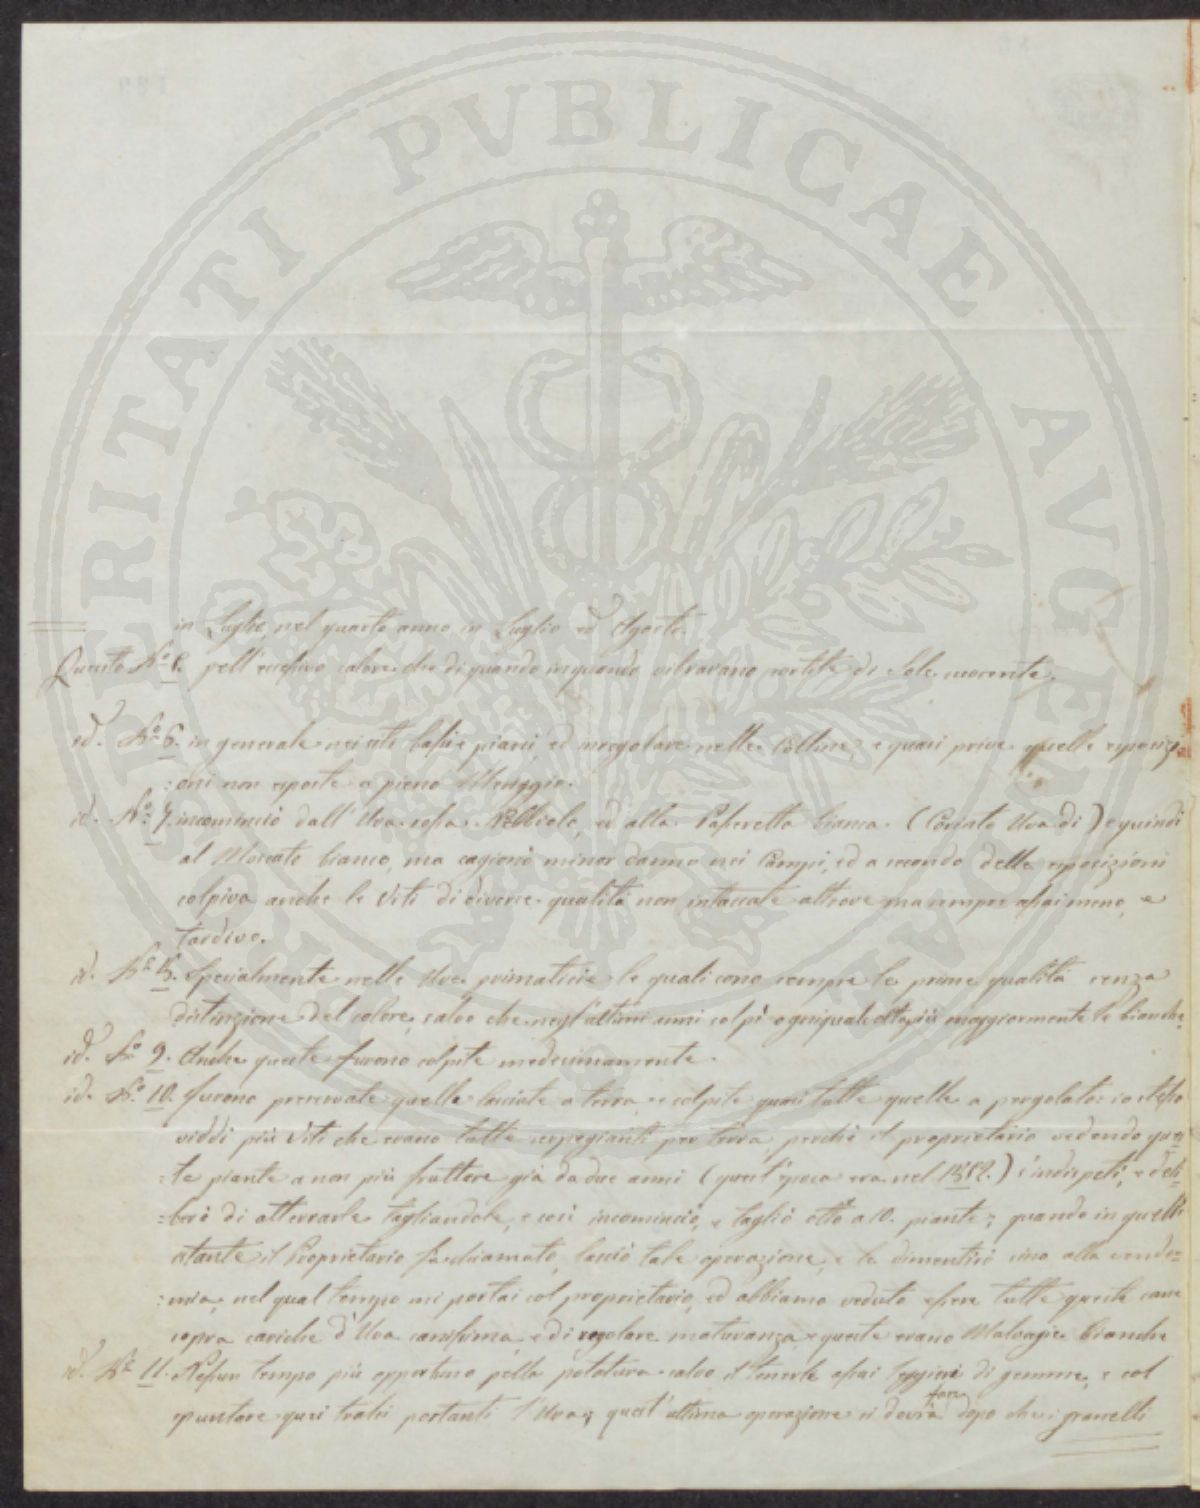 PROSPERITATI PVBLICAE AVGENDAE
in Luglio, nel quarto anno in Luglio ed Agosto.
Quesito N.o 8. pell'eccessivo calore che di quando in quando vibravano partite di Sole cocente.
id. N.o 6. in generale nei siti bassi e piani, ed irregolare nelle Colline, e quasi prive quelle esposizi=
=oni non esposte a pieno Meriggio.
id. N.o 7. incominciò dall'Uva rossa Nebbiolo, ed alla Passeretta bianca. ( Uva di ) e quindi
al Moscato bianco, ma cagionò minor danno nei Campi, ed a secondo delle esposizioni
colpiva anche le Viti di diverse qualità non intaccate altrove ma sempre assai meno, e
tardivo.
id. N.o 8. Specialmente nelle Uve primaticcie le quali sono sempre le prime qualità senza
distinzione del colore, salvo che negl'ultimi anni colpì ogniqualità più maggiormente le bianche.
id. N.o 9. Anche queste furono colpite medesimamente.
id. N.o 10. furono preservate quelle lasciate a terra, e colpite quasi tutte quelle a pergolato: io stesso
viddi più Viti che erano tutte serpegianti per terra, perché il proprietario vedendo ques=
=te piante a non più fruttare già da due anni ( quest'epoca era nel 1852. ) s'indispetì, e deli=
=berò di atterrarle tagliandole, e così incominciò, e tagliò otto a 10. piante; quando in quell'
istante il Proprietario fu chiamato, lasciò tale operazione, e la dimenticò sino alla vende=
=mia, nel qual tempo mi portai col proprietario, ed abbiamo veduto essere tutte queste
sopra cariche d'Uva sanissima, e di regolare maturanza, e queste erano Malvagie bianche
id. N.o 11. Nessun tempo più opportuno pella potatura salvo il tenerle assai leggieri di gemme, e col
spuntare quei tralci portanti l'Uva; quest'ultima operazione si dovrà fare dopo che i granelli